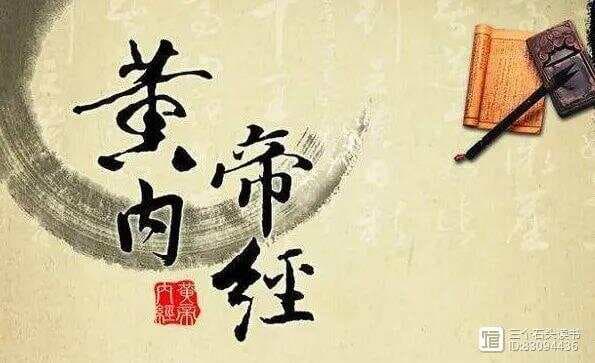 黄帝
内經
黄帝
内經
三个石头读书
ID:83094436